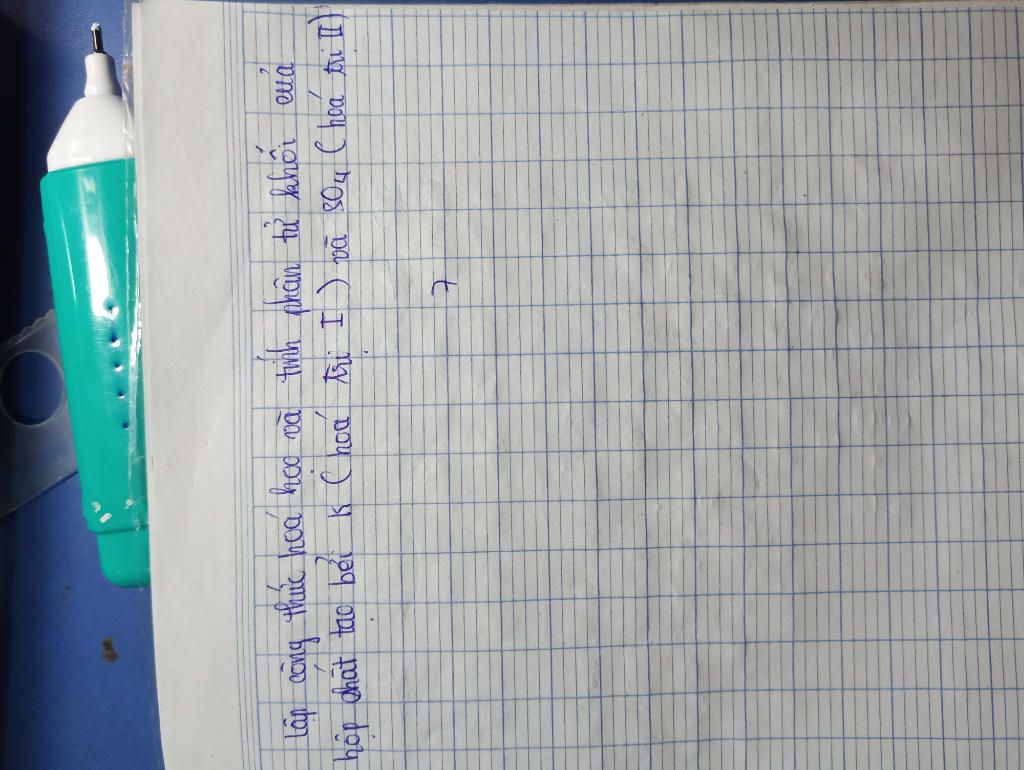 lập công thức hoá học và tính phân tử khối của
hộp chất tạo bởi K (hoá trị I) và SO4 (hoá trị II)
7